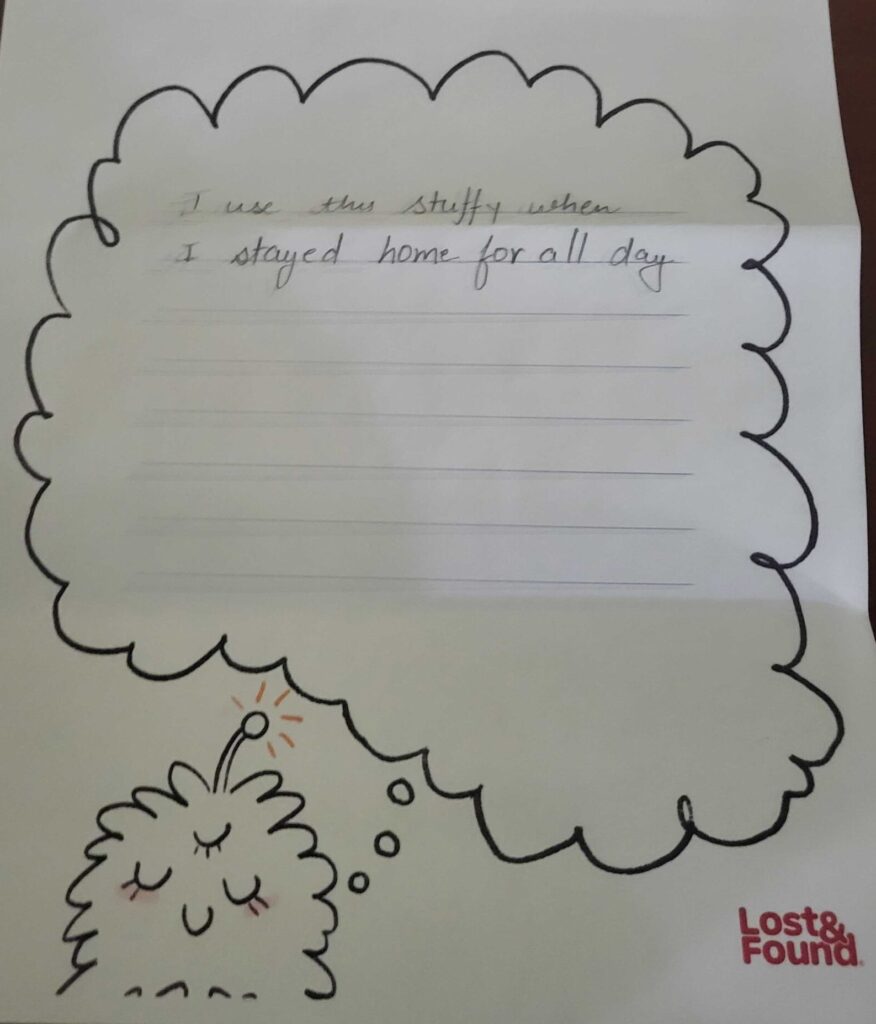 I use this stuffy when
I stayed home for all day
Lost&
Found